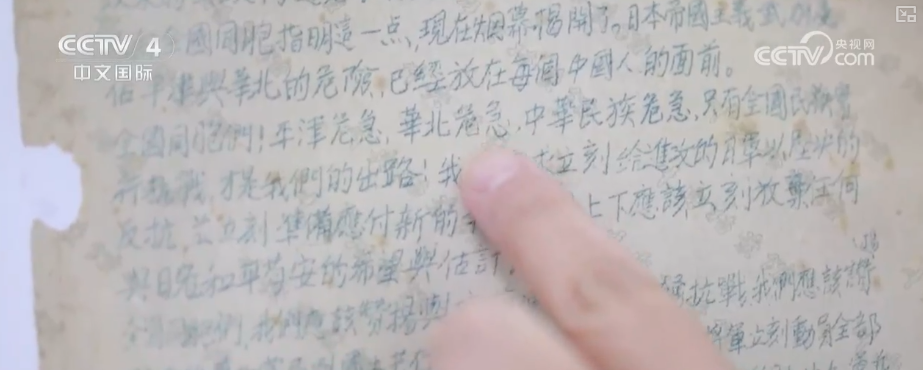 CCTV 4
中文国际
CCTV 央视网
com
國同胞指明這一点,現在烟幕揭開了。日本帝國主義武
佔平津與華北的危險,已經放在每個中國人的面前。
全國同胞們!平津危急,華北危急,中華民族危急,只有全國民族實
行抗戰,才是我們的出路!我 立刻給進攻的日軍以堅決的
反抗,並立刻準備應付新的 上下應該立刻放棄任何
與日寇和平苟安的希望與估計,
全國同胞們,我們應該贊揚與 抗戰,我們應該讚
軍立刻動員全部